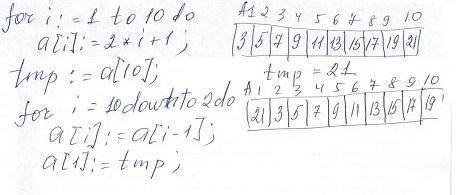 for i := 1 to 10 do
a[i] := 2*i+1;
tmp := a[10];
for i = 10 downto 2 do
a[i] := a[i-1];
a[1] := tmp;
A1 2 3 4 5 6 7 8 9 10
3 5 7 9 11 13 15 17 19 21
tmp = 21
A1 2 3 4 5 6 7 8 9 10
21 3 5 7 9 11 13 15 17 19